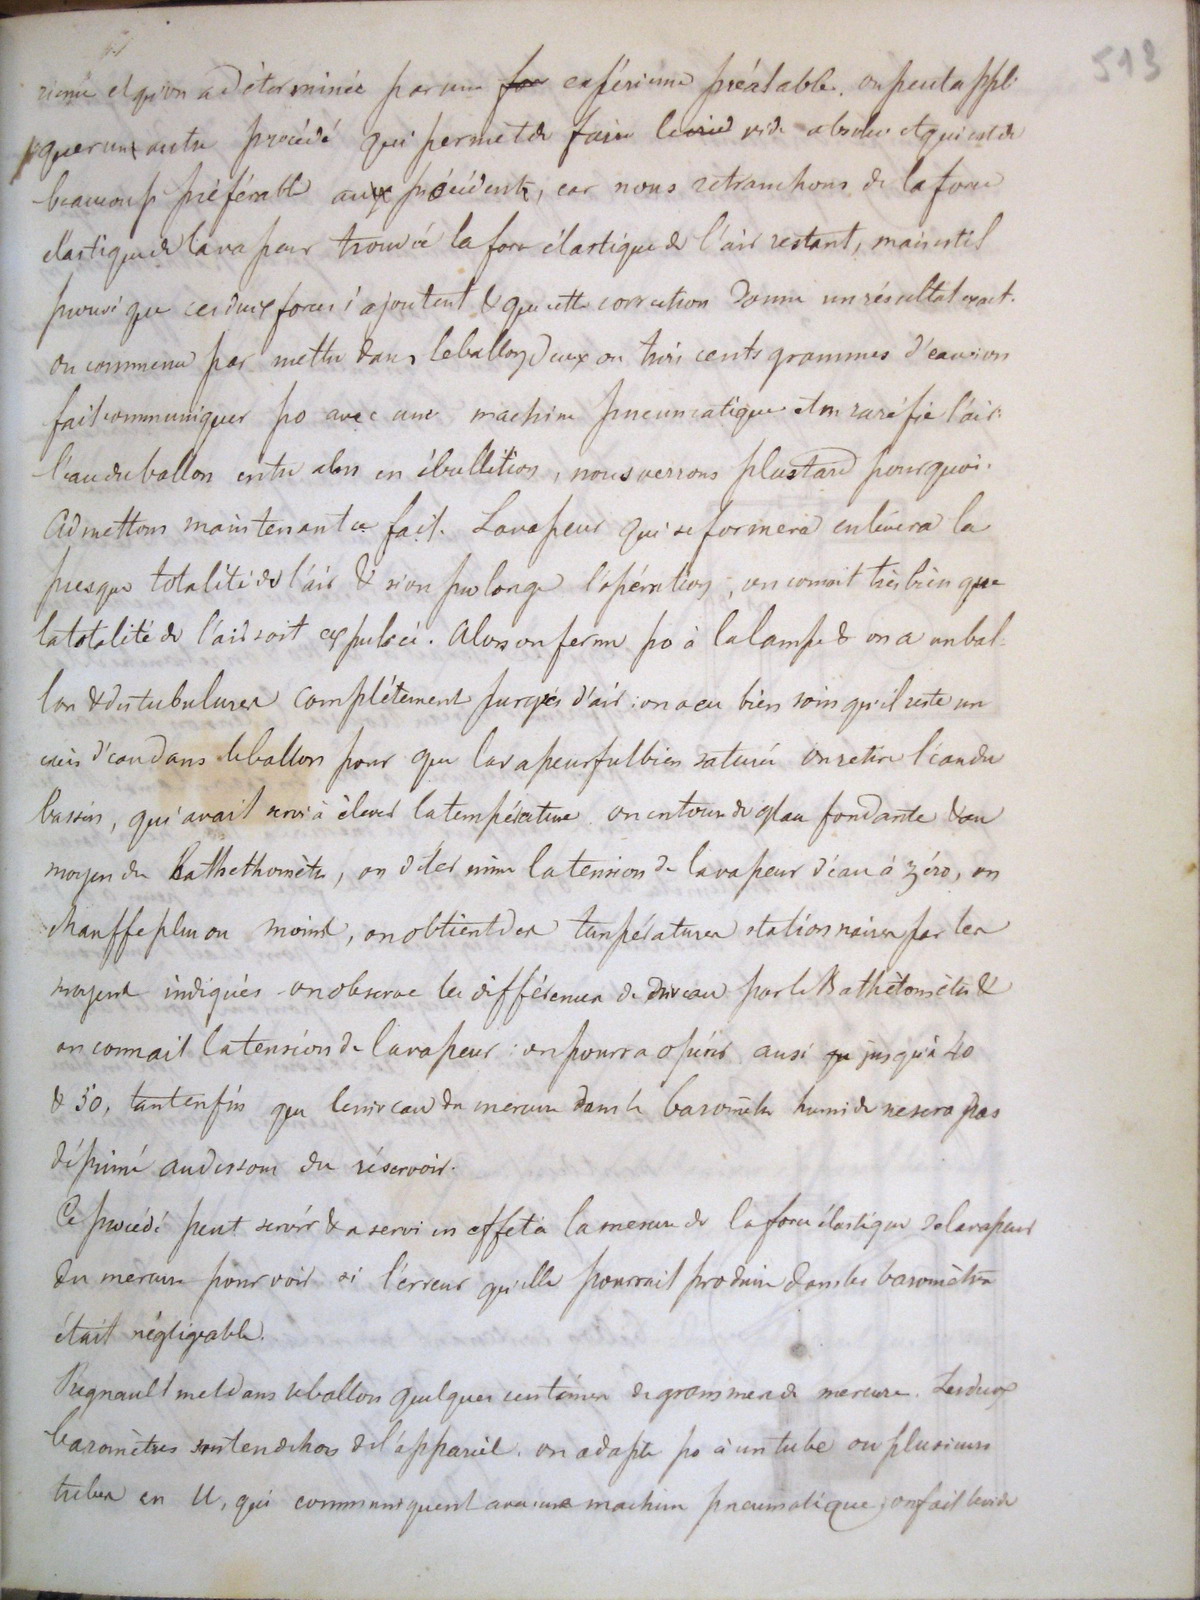 513
rieure et qu'on a déterminée par une for expérience préalable. on peut appli
quer un autre procédé qui permet de faire le vide absolu et qui est de
beaucoup préférable aux précédents, car nous retranchons de la force
élastique de la vapeur trouvée la force élastique de l'air restant, mais est il
prouvé que ces deux forces s'ajoutent & que cette correction donne un résultat exact.
on commence par mettre dans le ballon deux ou trois cents grammes d'eau : on
fait communiquer po avec une machine pneumatique et on raréfie l'air.
l'eau du ballon entre alors en ébullition, nous verrons plus tard pourquoi.
Admettons maintenant ce fait. La vapeur qui se formera enlèvera la
presque totalité de l'air & si on prolonge l'opération, on connait très bien que
la totalité de l'air soit expulsée. Alors on ferme po à la lampe & on a un bal-
lon & des tubulures complétement purgés d'air : on a eu bien soin qu'il reste un
excès d'eau dans le ballon pour que la vapeur fut bien saturée on retire l'eau du
bassin, qui avait servi à élever la température. on entoure de glace fondante & au
moyen du Kathethomètre, on détermine la tension de la vapeur d'eau à zéro, on
chauffe plus ou moins, on obtient des températures stationnaires par les
moyens indiqués on observe les différences de niveau par le Kathétomètre &
on connait la tension de la vapeur : on pourra opérer ausi qu jusqu'à 40
& 50, tant enfin que le niveau du mercure dans le baromètre humide ne sera pas
déprimé au dessous du réservoir.
Ce procédé peut servir & a servi en effet à la mesure de la force élastique de la vapeur
du mercure pour voir si l'erreur qu'elle pourrait produire dans les baromètres
était négligeable.
Regnault met dans le ballon quelques centaines de grammes de mercure. Les deux
baromètres sont en dehors de l'appareil. on adapte po à un tube ou plusieurs
tubes en U, qui communiquent avec une machine pneumatique ; on fait le vide